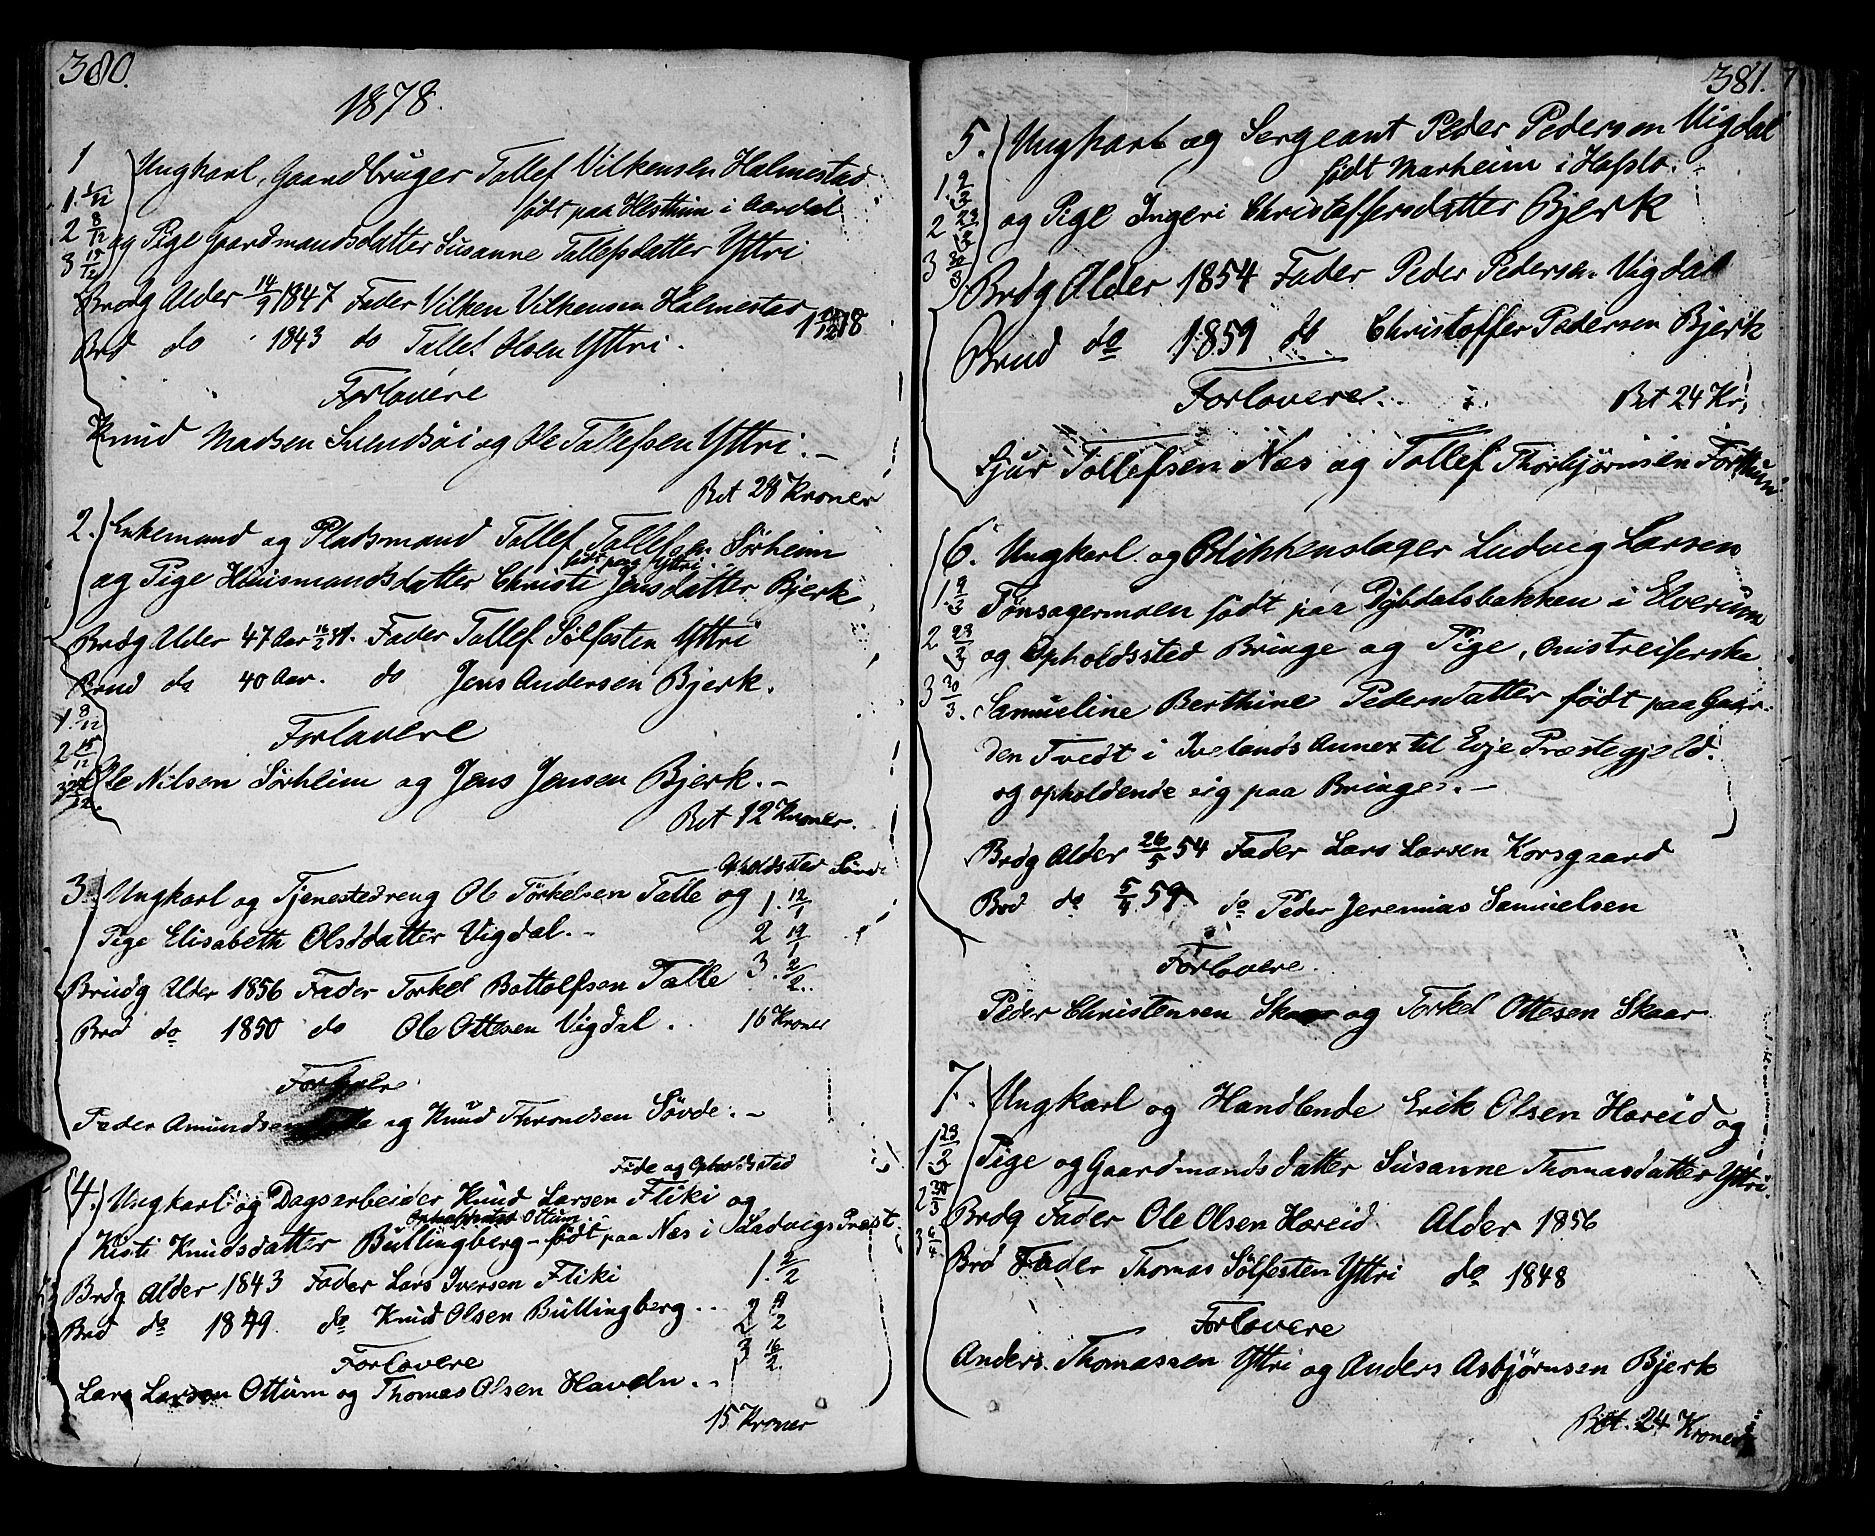 380.
1878.
1
Ungkarl, Gaardbruger Tollef Vilkensen Halmestad
født paa Hesthun i Aardal
1. 1/12
2 8/12
3 15/12
og Pige Gaardmandsdatter Susanne Tollefsdatter Yttri
Brdg Alder 14/9 1847 Fader Vilken Vilkensen Halmestad
Brd do 1843 do Tollef Olsen Yttri.
Forlovere
Knud Madsen Svendsøi og Ole Tollefsen Yttri.
Bet 28 Kroner
2. Enkemand og Pladsmand Tollef Tollefsen Sørheim
født paa Yttri
og Pige Huusmandsdatter Christi Jensdatter Bjerk
Brdg Alder 47 Aar 16/2 31. Fader Tollef Sølfesten Yttri
Brud do 40 Aar. do Jens Andersen Bjerk.
1. 8/12
2 15/12
Forlovere
Ole Nilsen Sørheim og Jens Jensen Bjerk.
Bet 12 Kroner.
Opholdssted Søvde
3. Ungkarl og Tjenestedreng Ole Torkelsen Talle og
1. 12/1
Pige Elisabeth Olsdatter Vigdal.
2 19/1
3. 2/2.
Brudg Alder 1856 Fader Torkel Bottolfsen Talle
Brd do 1850 do Ole Ottesen Vigdal.
16 Kroner
Forlovere
Peder Amundsen Talle og Knud Throndsen Søvde.
Føde og Opholdssted
4. Ungkarl og Dagsarbeider Knud Larsen Fliki og
Opholdssted Ottum
Kisti Knudsdatter Bullingberg - født paa Nes i Ladvigs Præst.
Brdg Alder 1843 Fader Lars Iversen Fliki
1. 2/2
Brd do 1849. do Knud Olsen Bullingberg.
2 9/2
3 16/2.
Forlovere
Lars Larsen Ottum og Thomas Olsen Haveln.
15 Kroner
381.
5. Ungkarl og Sergeant Peder Pedersen Vigdal
født Marheim i Hafslo.
1. 9/3
2 23/3
3 30/3
og Pige Ingeri Christoffersdatter Bjerk
Brdg Alder 1854 Fader Peder Pedersen Vigdal
Brud do 1859 do Christoffer Pedersen Bjerk
Forlovere.
Bet 24 Kr.
Sjur Tollefsen Nes og Tollef Thorbjørnsen Forthun
6. Ungkarl og Blikkenslager Ludvig Larsen
1. 9/3
Tønsagermoen født paa Dybdalsbakken i Elverum
2 23/3
og Opholdssted Bringe og Pige, omstreiferske
3 30/3.
Samueline Berthine Pedersdatter født paa Gaar-
den Tvedt i Ivelands Annex til Evje Præstegjeld.
og opholdende sig paa Bringe.
Brdg Alder 26/5 54 Fader Lars Larsen Korsgaard
Brd do 5/4 59 do Peder Jeremias Samuelsen
Forlovere
Peder Christensen Skaar og Torkel Ottesen Skaar
7. Ungkarl og Handlende Erik Olsen Horeid og
1 23/3
Pige og Gaardmandsdatter Susanne Thomasdatter Yttri.
2 30/3
Brdg Fader Ole Olsen Horeid Alder 1856
3 6/4
Brd Fader Thomas Sølfesten Yttri do 1848
Forlovere
Anders Thomassen Yttri og Anders Asbjørnsen Bjerk
Bet. 24 Kroner